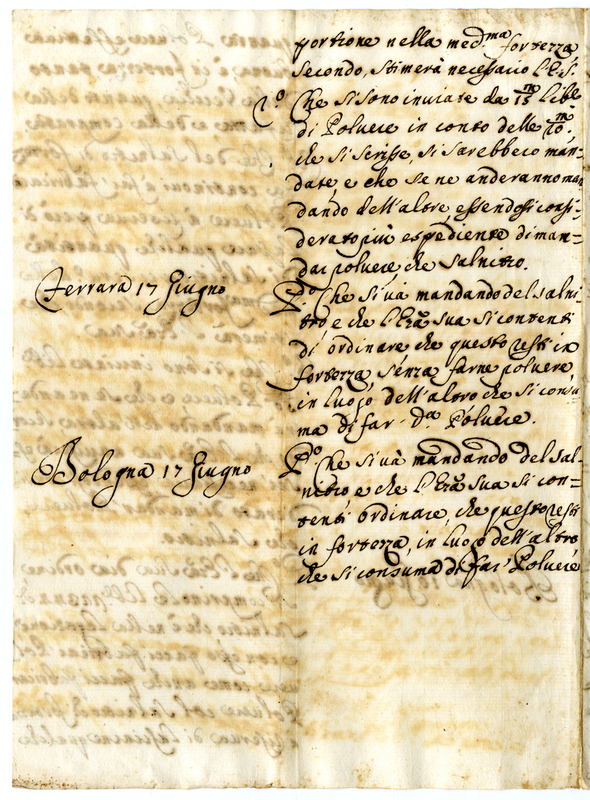 portione nella med.ma fortezza
secondo, stimerà necessario l'E.S.
2.o Che si sono inviate da 15 m Libre
di Polvere in conto delle 20 m.
che si scrisse, si sarebbero man=
date, e che se ne anderanno man
dando dell'altre, essendosi consi=
derato più espediente di man=
dar polvere, che salnitro.
Ferrara 17 Giugno
P.o Che si và mandando del salni=
tro e che l'Em.a sua si contenti
di ordinare, che questo resti in
fortezza, senza farne polvere,
in luogo dell'altro che si consu=
ma di far d.a Polvere.
Bologna 17 Giugno
P.o Che si và mandando del sal=
nitro e che l'Em.a sua si con=
tenti ordinare, che questo resti
in fortezza, in luogo dell'altro
che si consuma di far Polvere